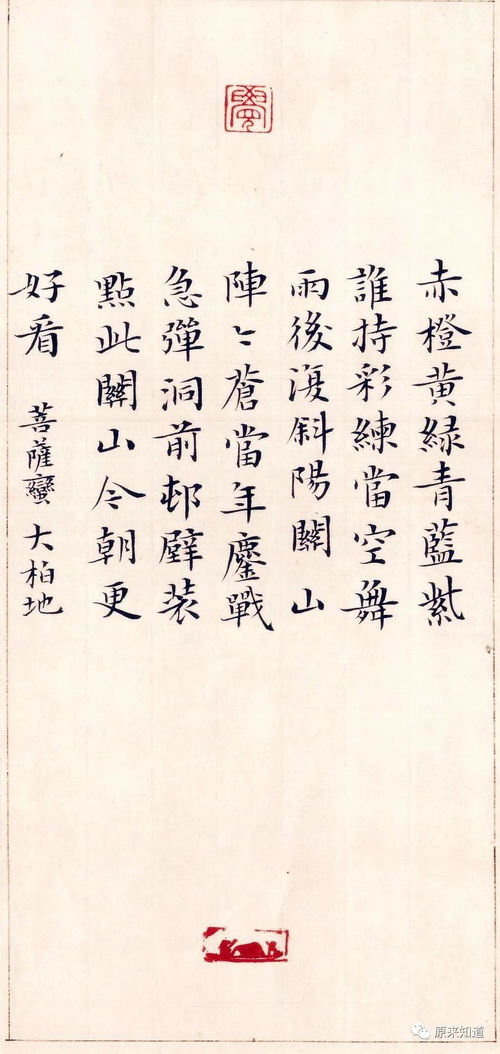 赤橙黃緑青藍紫
誰持彩練當空舞
雨後復斜陽關山
陣〻蒼當年鏖戰
急彈洞前邨壁装
點此關山今朝更
好看
菩薩蠻大柏地
原来知道